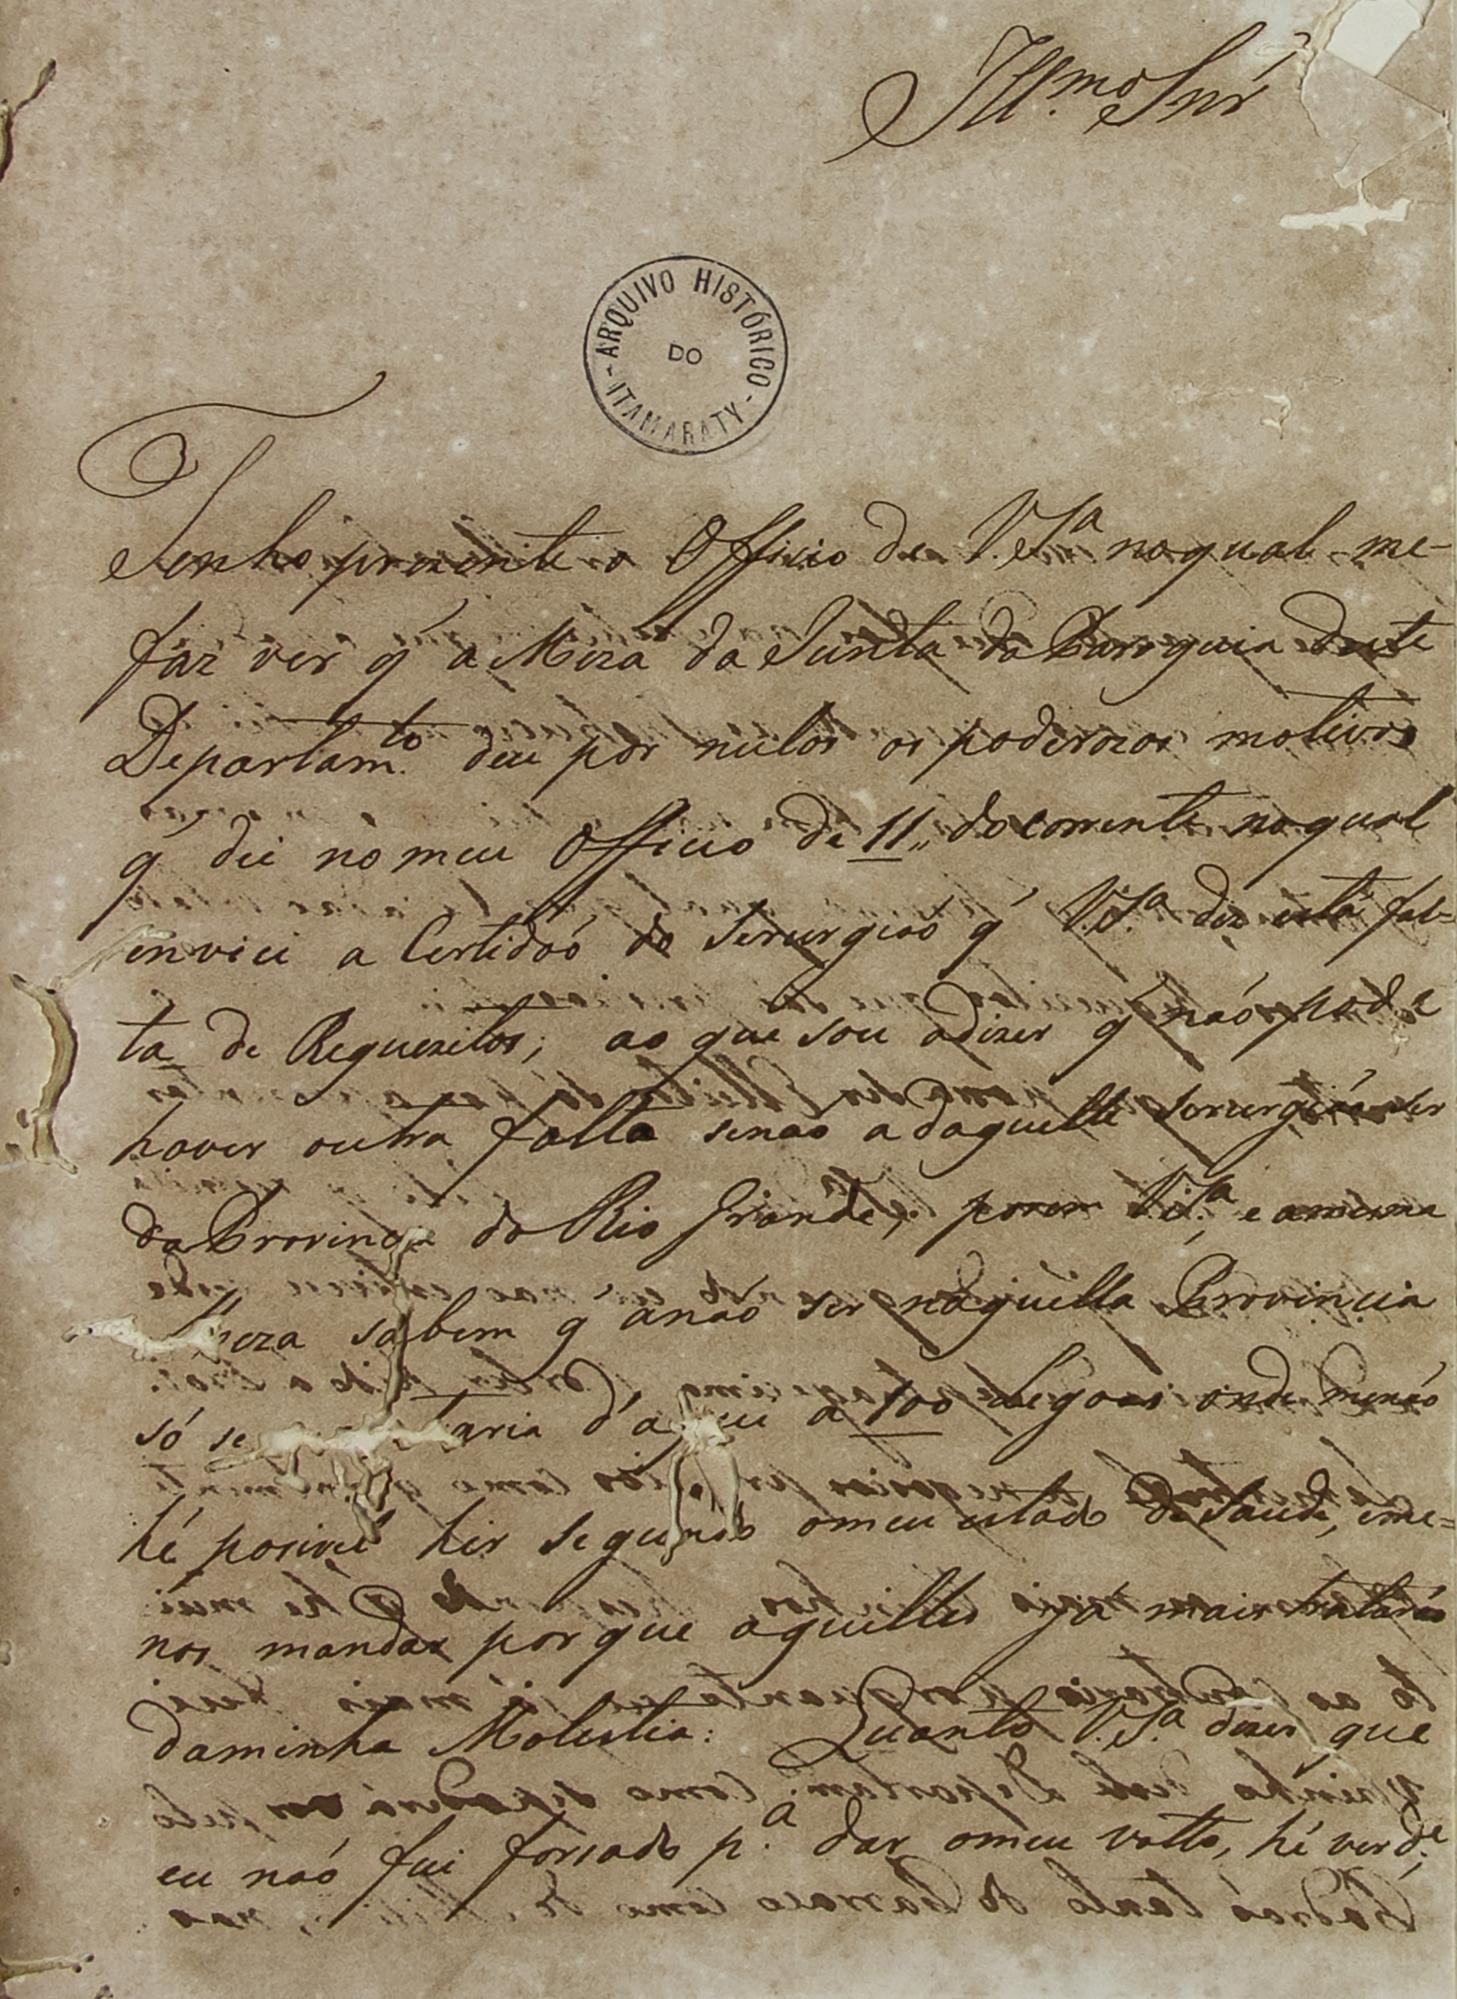 Ill.mo Snr
ARQUIVO HISTÓRICO
DO
ITAMARATY
Tenho prezente o Officio de V.Sª noqual-me-
faz ver q' a Meza da Junta da Parroquia deste
Departam.to deu por nulos os poderozos motivos
q' dei no meu Officio de 11,, do corrente noqual
enviei a Certidaó do Serurgiaó q' V.Sª diz está fal=
ta de Requezitos; ao que sou adizer q' naó pode
haver outra falta senao a daquelle serurgiaó ser
da Provincia do Rio Grande, porem V.Sª, e amesma
Meza sabem q' anaó ser naquella Provincia
só se taria d'aqui a 100 Legoas onde menaó
hé posivel hir segundo omeu estado de Saude, eme=
nos mandar porque aquelles já mais trataraó
daminha Molestia: Quanto V.Sª dizer que
eu naó fui forsado p.ª dar omeu votto, hé verd.e;